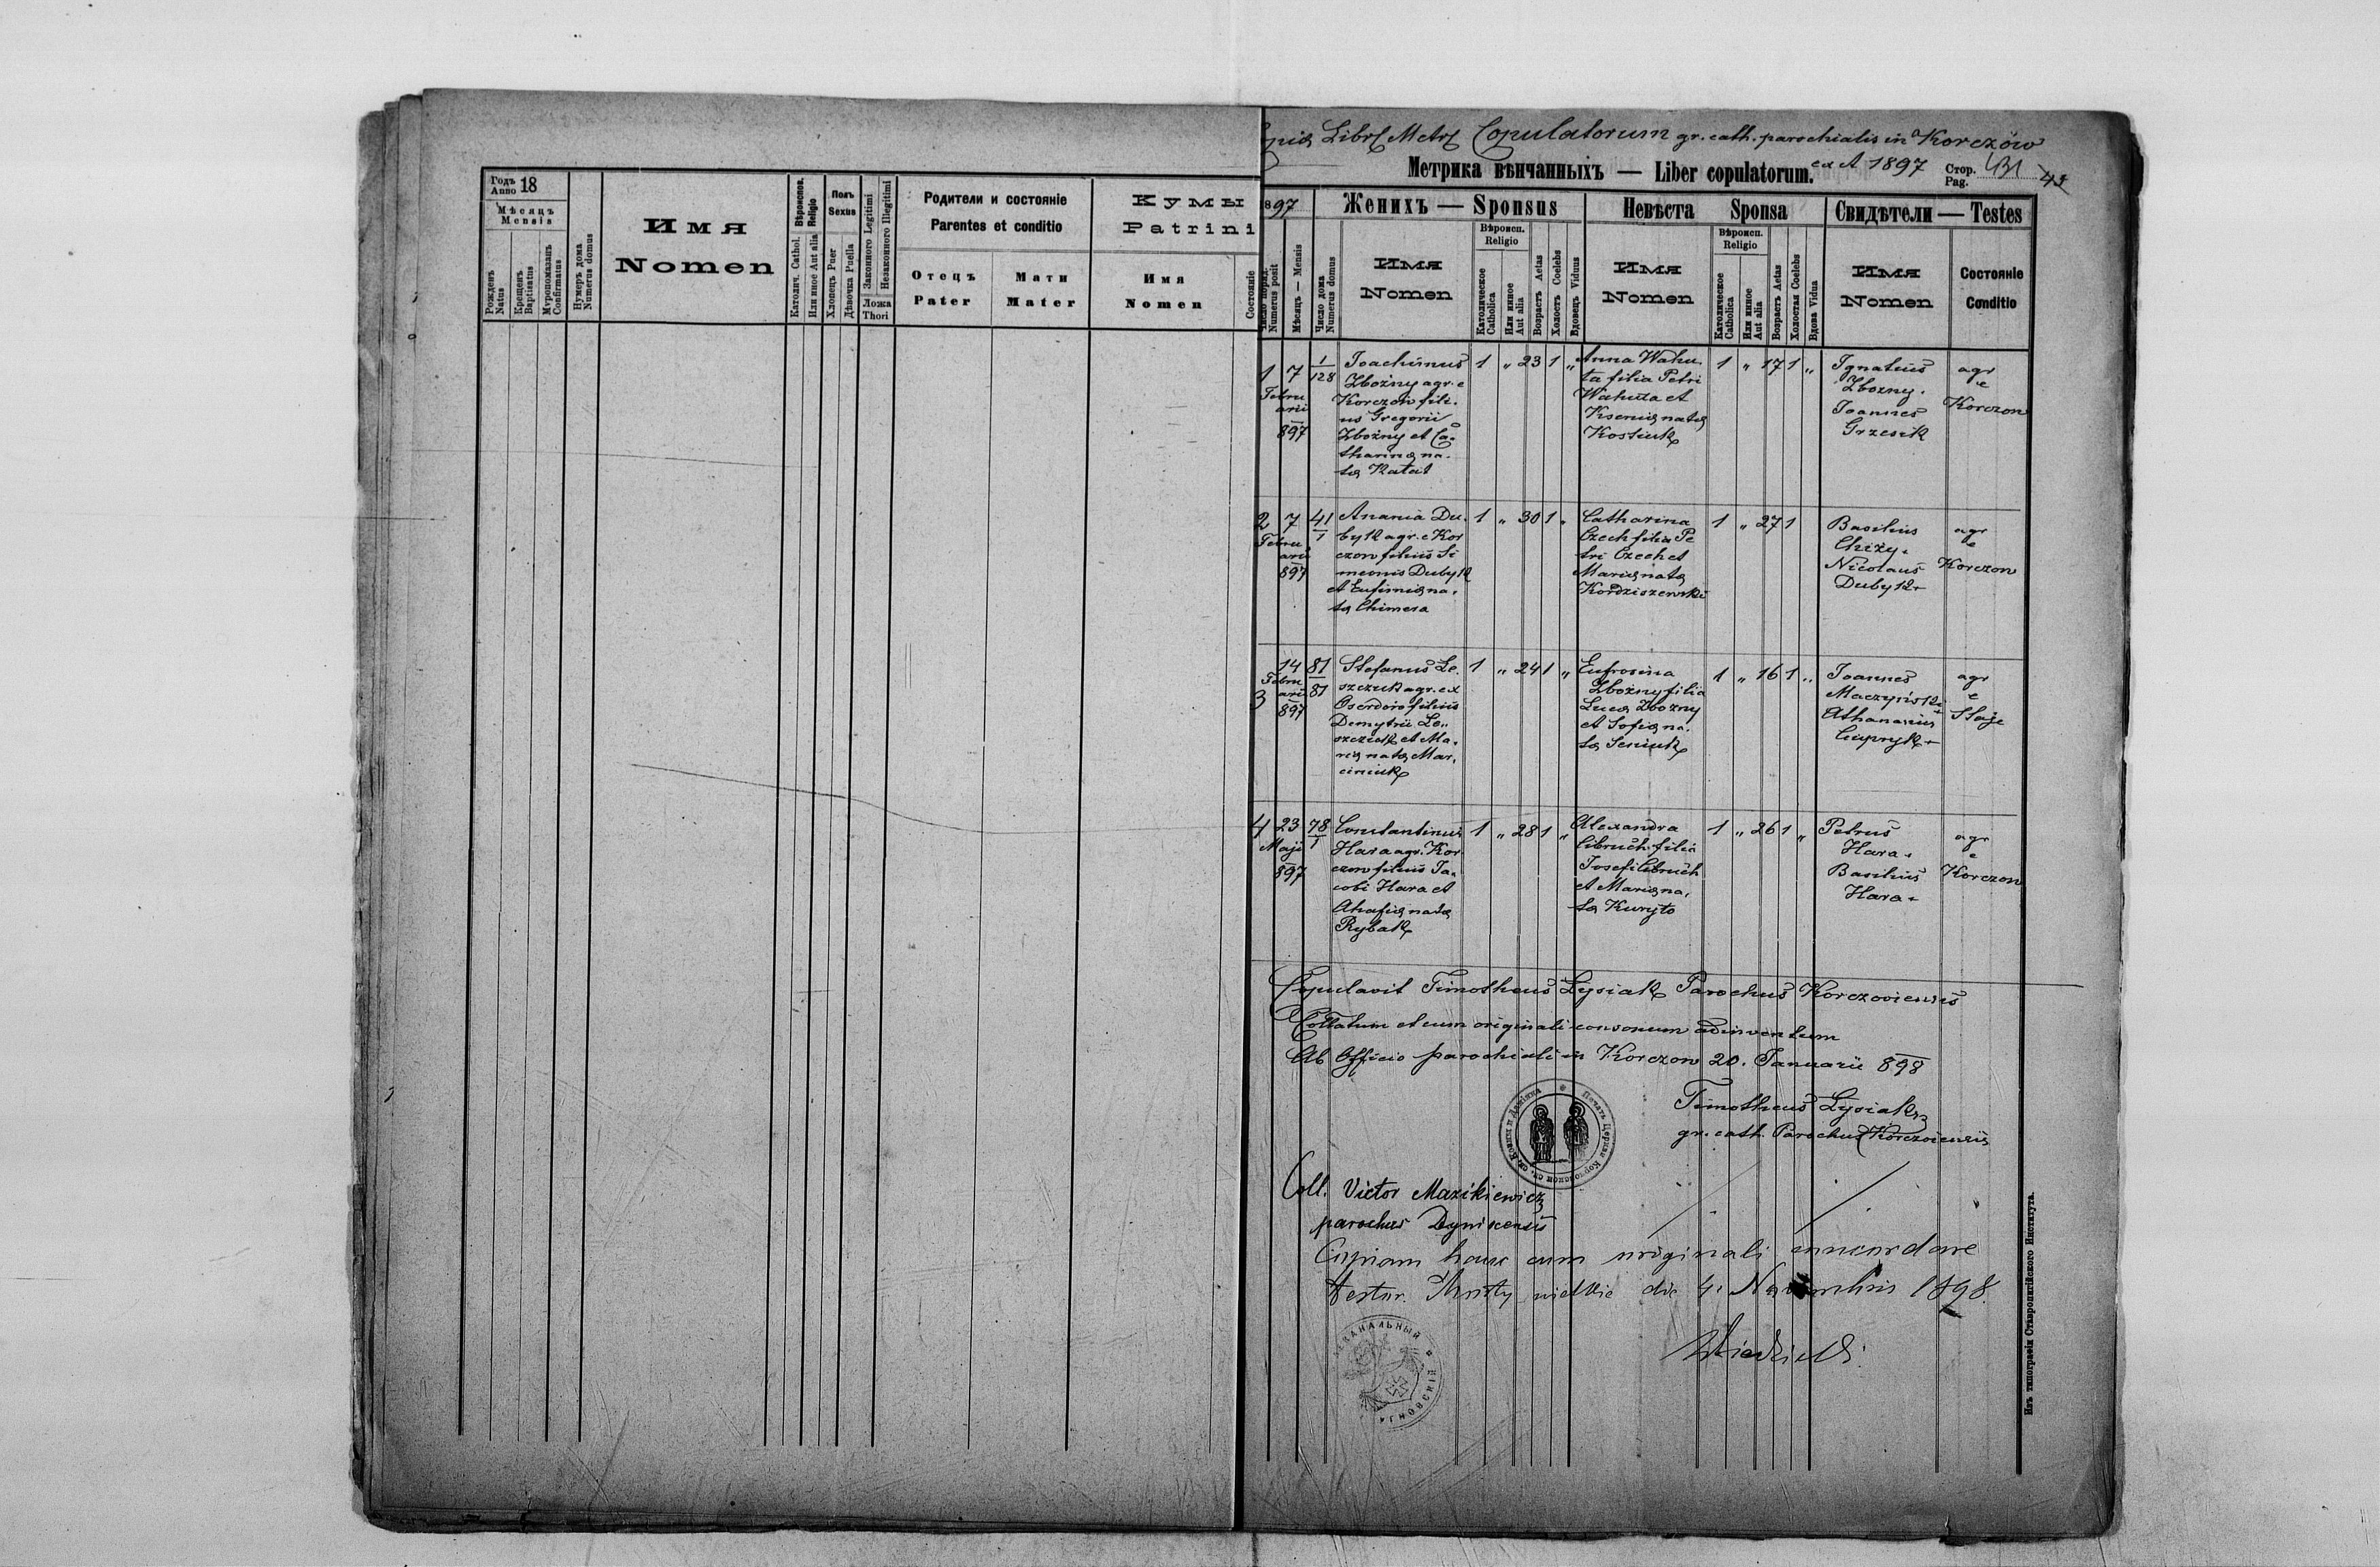 Годъ 18
Anno
Мѣсяцъ
Mensis
Рожденъ
Natus
Крещенъ
Baptisatus
Мѵропомазанъ
Confirmatus
Нумеръ дома
Numerus domus
Имя
Nomen
Вѣроиспов.
Religio
Католич. Cathol.
Или иное Aut alia
Полъ
Sexus
Хлопецъ Puer
Дѣвочка Puella
Законного Legitimi
Незаконного Illegitimi
Ложа
Thori
Родители и состояніе
Parentes et conditio
Отецъ
Pater
Мати
Mater
Кумы
Patrini
Имя
Nomen
Состояніе
Libri Metr Copulatorum gr. cath. parochialis in Korczów
ex A 1897
Метрика вѣнчанныхъ — Liber copulatorum.
Стор.
Pag.
897
Numerus posit
Мѣсяцъ — Mensis
Число дома
Numerus domus
Женихъ — Sponsus
Имя
Nomen
Вѣроисп.
Religio
Католическое
Catholica
Или инное
Aut alia
Возрастъ Aetas
Холостъ Coelebs
Вдовецъ Viduus
Невѣста Sponsa
Имя
Nomen
Вѣроисп.
Religio
Католическое
Catholica
Или инное
Aut alia
Возрастъ Aetas
Холостая Coelebs
Вдова Vidua
Свидѣтели — Testes
Имя
Nomen
Состояніе
Conditio
1 7
Febru
arii
897
1
128
Joachimus
Zbożny agr. e
Korczów fili-
us Gregorii
Zbożny et Ca-
tharina na-
ta
1 " 23 1 "
Anna Wahu-
ta filia Petri
Wahuta et
Ksenia nata
Kostiuk
1 " 17 1 "
Ignatius
Zbozny.
Joannes
Grzesik
agr
e
Korczow
2 7
Febru
arii
897
41
1
Anania Du-
byk agr. e Kor
czow filius Si
meonis Dubyk
et Eufimia na-
ta Chimera
1 " 30 1 "
Catharina
Czech filia Pe
tri Czech et
Maria nata
Kordziszewski
1 " 27 1
Basilius
Chiży.
Nicolaus
Dubyk +
agr
e
Korczow
3
14
Febru
arii
897
81
81
Stefanus Le-
szczuk agr. ex
Oserdów filius
Demytrii Le-
szczuk et Ma-
ria nata Mar-
ciniuk
1 " 24 1 "
Eufrosina
Zbożny filia
Luca Zbozny
et Sofia na-
ta Seniuk
1 " 16 1 "
Joannes
Athanasius
Cupryk +
agr
e
Staje
4 23
Maji
897
78
1
Constantinus
Hara agr. Kor
czow filius Ja-
cobi Hara et
Ahafia nata
Rybak
1 " 28 1 "
Alexandra
Cibruch filia
Josefi Cibruch
et Maria na-
ta Kuryło
1 " 26 1 "
Petrus
Hara.
Basilius
Hara +
agr
e
Korczow
Copulavit Timotheus Lysiak Parochus Korczoviensis
Collatum et cum originali consonum adinventum
Ab Officio parochiali in Korczow 20. Januarii 898
Timotheus Lysiak
gr. cath. Parochus Korczoviensis
Coll. Victor Mazikiewicz
parochus Dyniscensis
Copiam hanc cum originali concordare
testor. Mosty wielkie die 4. Novembris 1898.
Изъ типографіи Ставропигійского Института.